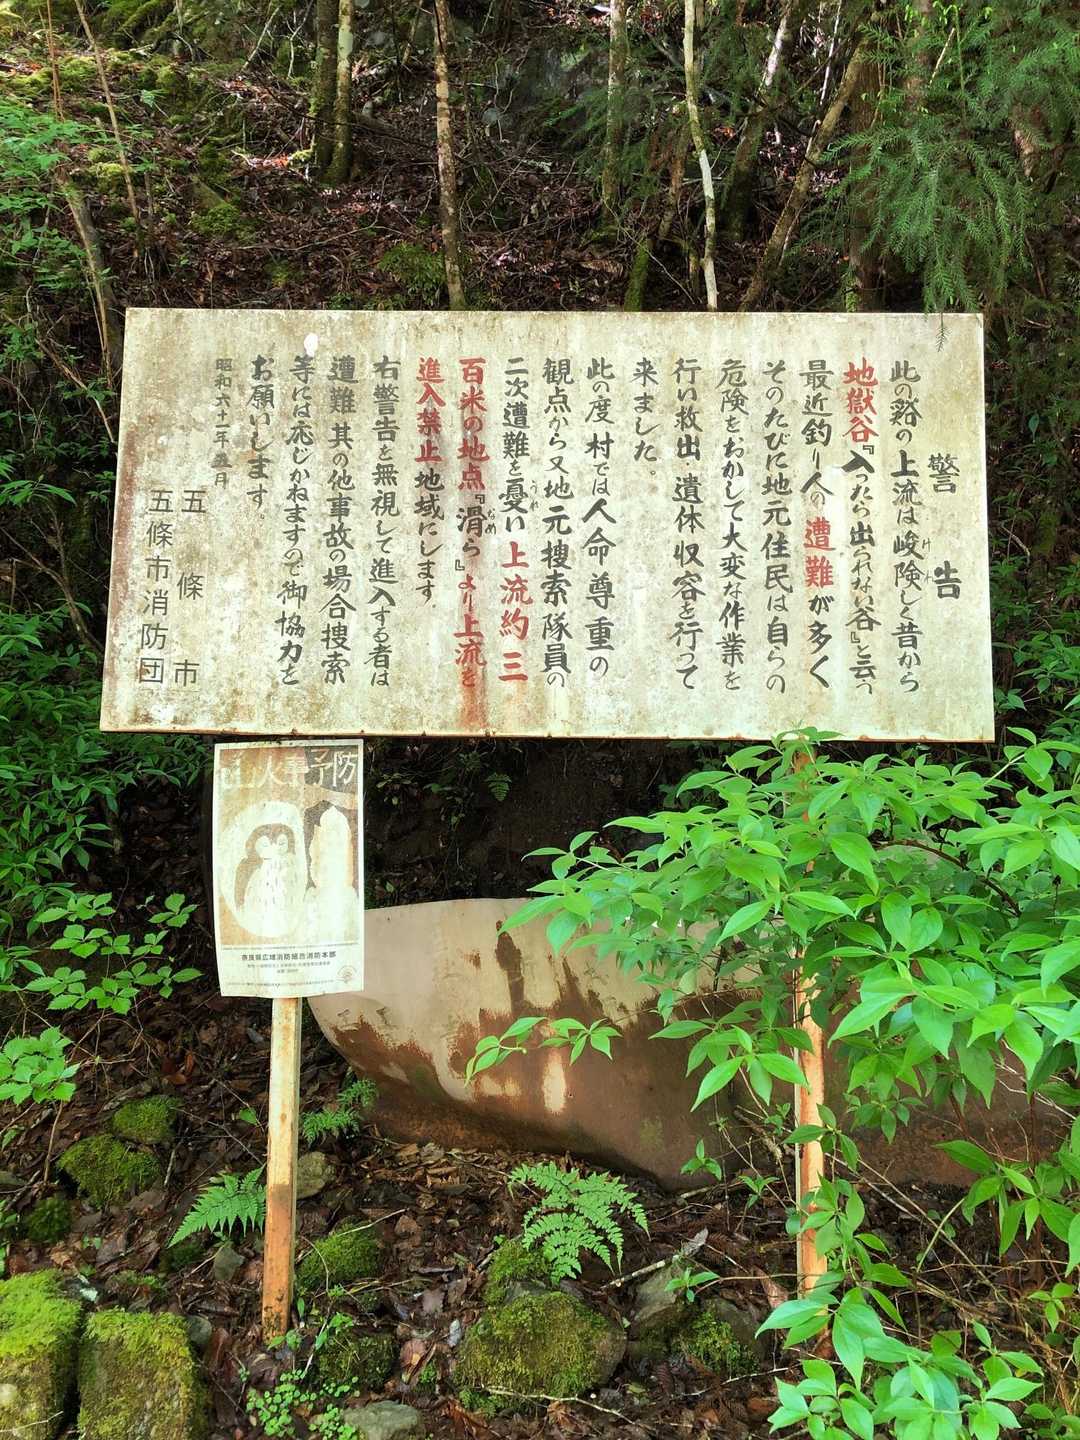 警告
此の谿の上流は峻険しく昔から
地獄谷『入ったら出られない谷』と云う
最近釣り人の遭難が多く
そのたびに地元住民は自らの
危険をおかして大変な作業を
行い救出・遺体収容を行って
来ました。
此の度村では人命尊重の
観点から又地元捜索隊員の
二次遭難を憂い上流約三
百米の地点『滑ら』より上流を
進入禁止地域にします。
右警告を無視して進入する者は
遭難其の他事故の場合捜索
等には応じかねますので御協力を
お願いします。
昭和六十一年五月
五條市
五條市消防団
火事予防
奈良県広域消防組合消防本部